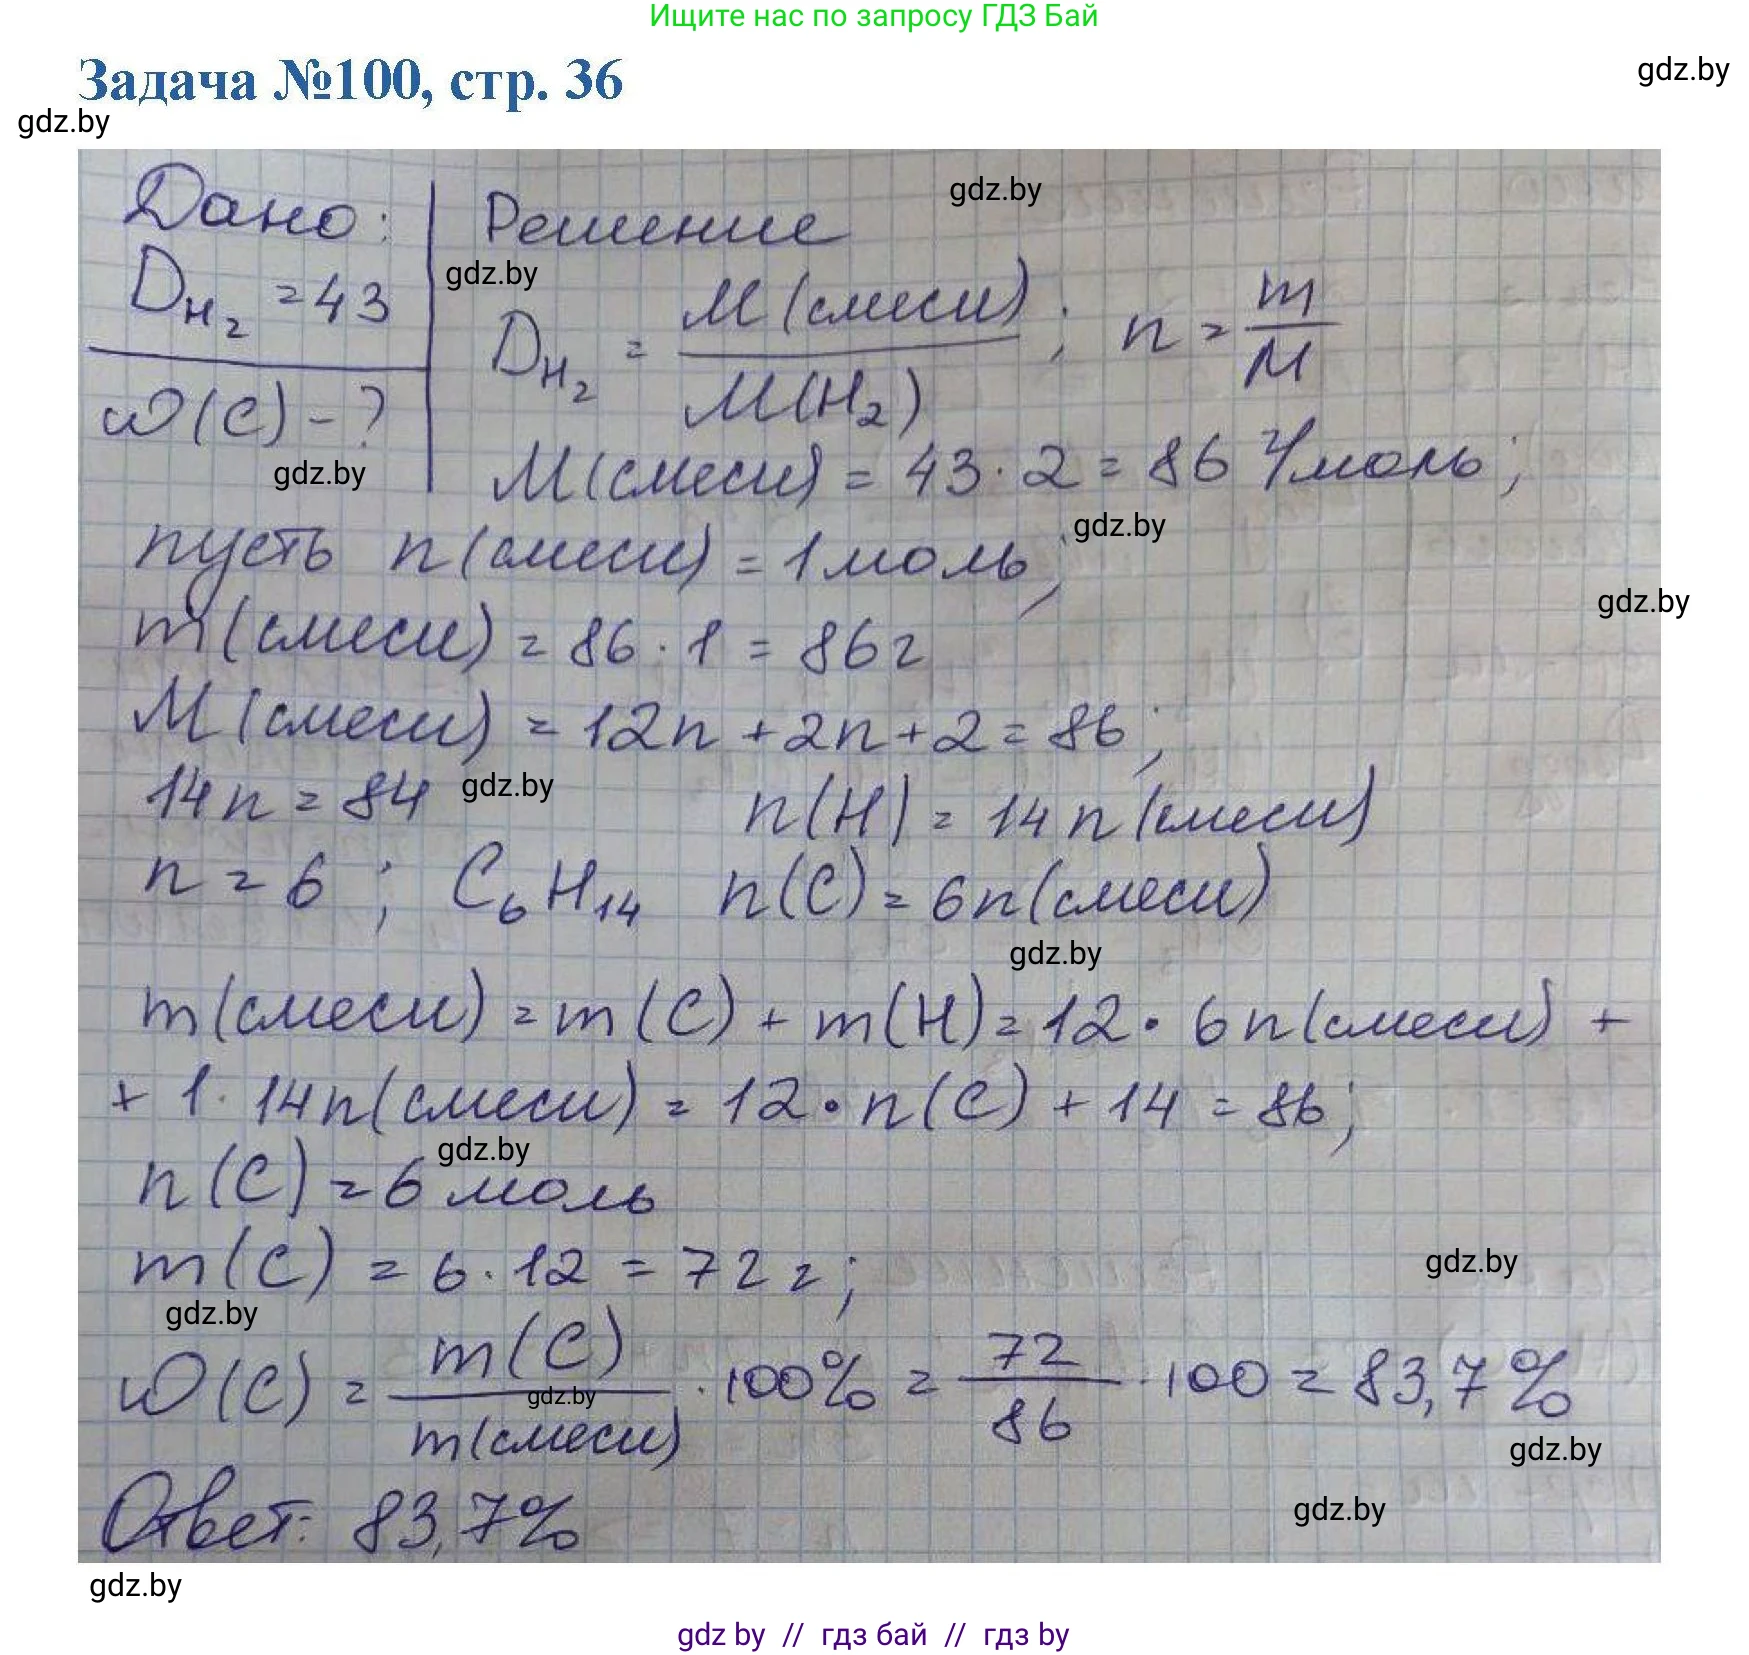 Ищите нас по запросу ГДЗ Бай
Задача №100, стр. 36
gdz.by
gdz.by
Дано:
D_{H_2} = 43
ω(C) - ?
gdz.by
Решение
gdz.by
gdz.by
D_{H_2} = M(смеси) / M(H_2); n = m / M
M(смеси) = 43 · 2 = 86 г/моль;
gdz.by
пусть n(смеси) = 1 моль;
gdz.by
m(смеси) = 86 · 1 = 86 г
M(смеси) = 12n + 2n + 2 = 86;
14n = 84
gdz.by
n(H) = 14n(смеси)
n = 6; C_6H_{14} n(C) = 6n(смеси)
gdz.by
m(смеси) = m(C) + m(H) = 12 · 6n(смеси) +
+ 1 · 14n(смеси) = 12 · n(C) + 14 = 86;
gdz.by
n(C) = 6 моль
m(C) = 6 · 12 = 72 г;
gdz.by
gdz.by
ω(C) = m(C) / m(смеси) · 100% = 72 / 86 · 100 = 83,7%
gdz.by
gdz.by
Ответ: 83,7%
gdz.by
gdz.by
gdz by // гдз бай // гдз by